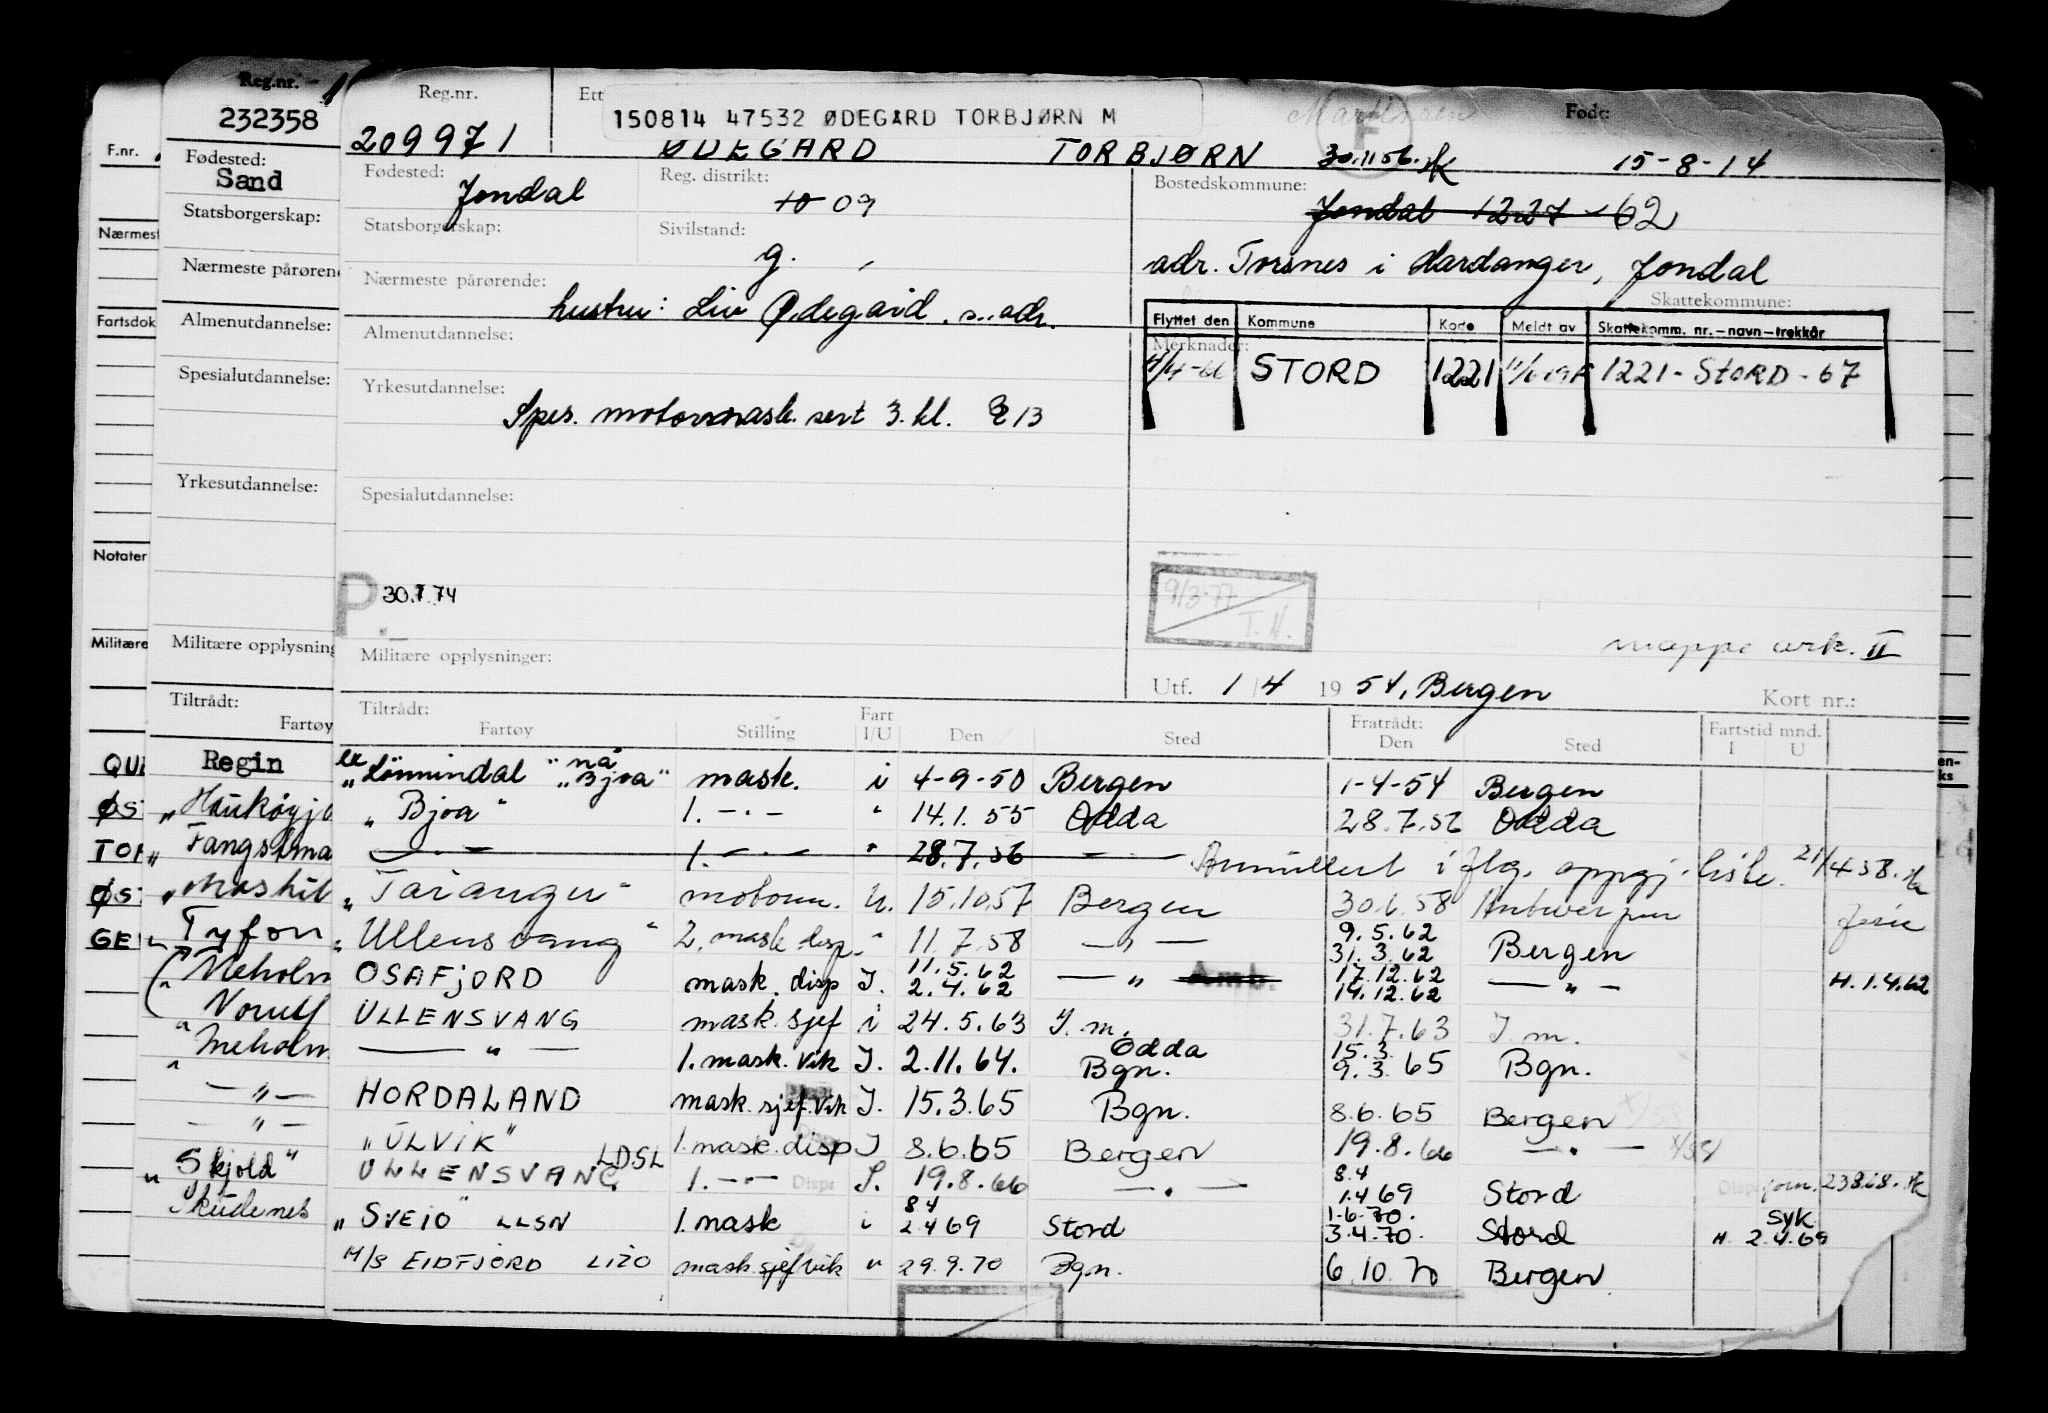 Reg.nr.
232358
Fødested:
Sand
Statsborgerskap:
Nærmeste pårørend
Almenutdannelse:
Spesialutdannelse:
Yrkesutdannelse:
Militære opplysning
Tiltrådt:
Fartøy
Regin
„Haukøyj
„Fangstma
„
Tyfon
Meholm
Norulf
Meholm
— „ —
— „ —
„Skjold"
Skudenes
F.nr.
Nærmest
Fartsdok
Notater
Militære
QU
ØS
TOR
ØS
GE
Reg.nr.
209971
Ett
150814 47532 ØDEGARD TORBJØRN M
ØDEGARD TORBJØRN
30.11.56.
F
Født:
15-8-14
Fødested:
Jondal
Reg. distrikt:
10 09
Bostedskommune:
Jondal 1227 - 62
Statsborgerskap:
Sivilstand:
g.
adr. Torsnes i Hardanger, Jondal
Nærmeste pårørende:
hustru: Liv Ødegård. s. adr.
Skattekommune:
Flyttet den Kommune Kode Meldt av Skattekomm. nr.-navn-trekkår
Merknader:
STORD 1221 1221 - STORD - 67
Almenutdannelse:
Yrkesutdannelse:
Spes. motormask. sert 3. kl. E 13
Spesialutdannelse:
P. 30.7.74
9/3-77
T.N.
mappe ark. II
Militære opplysninger:
Utf. 1/4 1954, Bergen
Kort nr.:
Tiltrådt:
Fartøy Stilling Fart I/U Den Sted
Fratrådt:
Den Sted
Fartstid mnd.
I U
"Lönnindal" nå "Bjoa" mask. i 4-9-50 Bergen 1-4-54 Bergen
„Bjoa" 1. -·- " 14.1.55 Odda 28.7.56 Odda
— „ — 1. — " — " 28.7.56 — Annullert i flg. oppgj. liste. 21/4 58.
„Taranger" motorm. U. 15.10.57 Bergen 30.6.58 Antwerpen ferie
„Ullensvang" 2. mask disp. " 11.7.58 — „ — 9.5.62 31.3.62 Bergen
OSAFJORD mask. disp I. 11.5.62 2.4.62 — „ — Amb. 17.12.62 14.12.62 — „ — H. 1.4.62
ULLENSVANG mask. sjef i 24.5.63 I. m. 31.7.63 I m.
— „ — 1. mask. vik I. 2.11.64. Odda Bgn. 15.3 9.3.65 Bgn.
HORDALAND mask. sjef. vik I. 15.3.65 Bgn. 8.6.65 Bergen
„ULVIK" 1. mask. disp I 8.6.65 Bergen 19.8.66 — „ —
ULLENSVANG LDSL 1. -·- Disp. I. 19.8.66 — „ — 8.4 1.4 69 Stord
„SVEIO" LLSN 1. mask i 8 4 2 4 69 Stord 1-6-70. 3-4-70. Stord syk H. 2.4.69
M/S EIDFJORD LIZO mask sjef vik " 29.9.70 Bgn. 6.10.70 Bergen